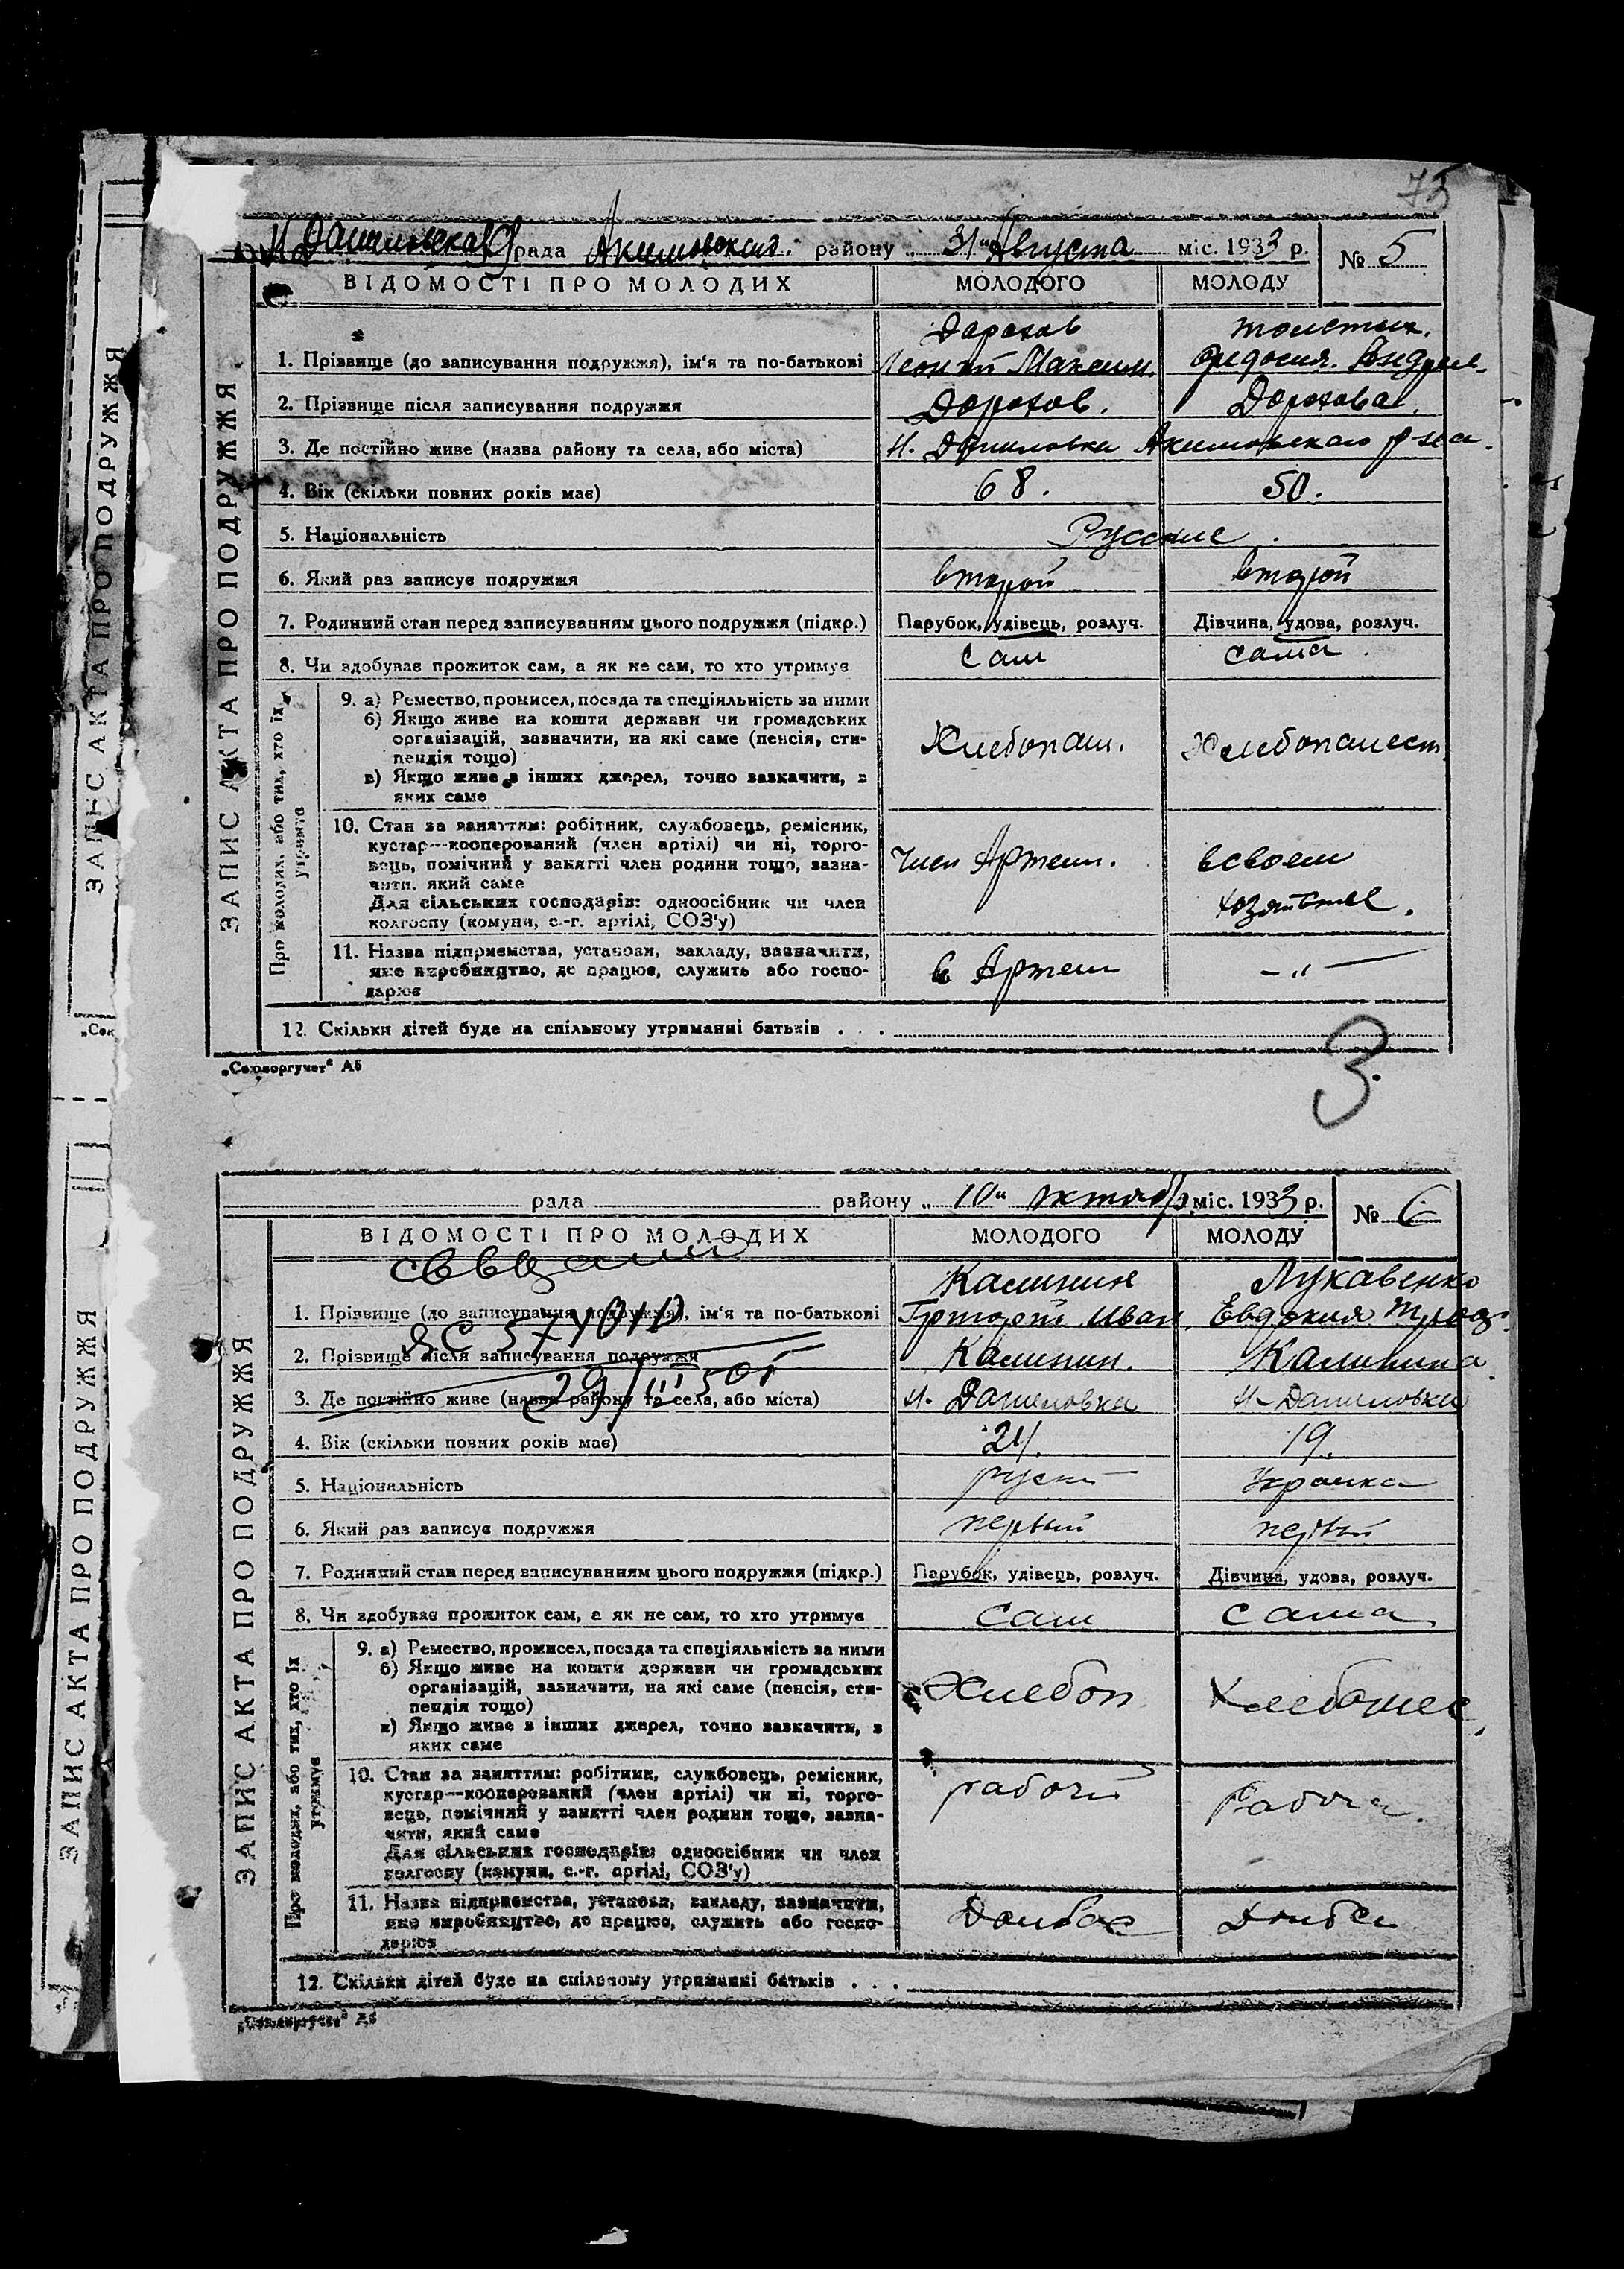 75
Н Даниловская рада Акимовского району „31“ Августа міс. 1933 р. № 5
ВІДОМОСТІ ПРО МОЛОДИХ МОЛОДОГО МОЛОДУ
Дорохов Толстых.
1. Прізвище (до записування подружжя), ім'я та по-батькові Леонтий Максим. Федосия. Андрее.
2. Прізвище після записування подружжя Дорохов. Дорохова.
3. Де постійно живе (назва району та села, або міста) Н. Даниловка Акимовского р-на.
4. Вік (скільки повних років має) 68. 50.
5. Національність Русские.
6. Який раз записує подружжя второй второй
7. Родинний стан перед записуванням цього подружжя (підкр.) Парубок, удівець, розлуч. Дівчина, удова, розлуч.
8. Чи здобуває прожиток сам, а як не сам, то хто утримує Сам сама.
9. а) Ремество, промисел, посада та спеціяльність за ними
б) Якщо живе на кошти держави чи громадських
організацій, зазначити, на які саме (пенсія, сти-
пендія тощо)
Хлебопаш. Хлебопашест.
в) Якщо живе з інших джерел, точно зазначити, з
яких саме
10. Стан за заняттям: робітник, службовець, ремісник,
кустар—кооперований (член артілі) чи ні, торго-
вець, помічний у занятті член родини тощо, зазна-
чити, який саме
Член Артели. в своем
хозяйстве.
Для сільських господарів: одноосібник чи член
колгоспу (комуни, с.-г. артілі, СОЗ'у)
11. Назва підприємства, установи, закладу, зазначити,
яке виробництво, де працює, служить або госпо-
дарює
в Артели -"-
12. Скільки дітей буде на спільному утриманні батьків . . .
ЗАПИС АКТА ПРО ПОДРУЖЖЯ
Про молодих, або тих, хто їх утримує
„Союзоргучет“ А5
3.
рада району „10“ октября міс. 1933 р. № 6
ВІДОМОСТІ ПРО МОЛОДИХ МОЛОДОГО МОЛОДУ
Калинин Лукавенко
1. Прізвище (до записування подружжя), ім'я та по-батькові Григорий Иван. Евдокия
2. Прізвище після записування подружжя Калинин. Калинина
29/III 50г
3. Де постійно живе (назва району та села, або міста) Н. Даниловка Н-Даниловка
4. Вік (скільки повних років має) 24. 19.
5. Національність руский Украинка
6. Який раз записує подружжя первый первый
7. Родинний стан перед записуванням цього подружжя (підкр.) Парубок, удівець, розлуч. Дівчина, удова, розлуч.
8. Чи здобуває прожиток сам, а як не сам, то хто утримує Сам Сама
9. а) Ремество, промисел, посада та спеціяльність за ними
б) Якщо живе на кошти держави чи громадських
організацій, зазначити, на які саме (пенсія, сти-
пендія тощо)
Хлебоп
в) Якщо живе з інших джерел, точно зазначити, з
яких саме
10. Стан за заняттям: робітник, службовець, ремісник,
кустар—кооперований (член артілі) чи ні, торго-
вець, помічний у занятті член родини тощо, зазна-
чити, який саме
рабочий
Для сільських господарів: одноосібник чи член
колгоспу (комуни, с.-г. артілі, СОЗ'у)
11. Назва підприємства, установи, закладу, зазначити,
яке виробництво, де працює, служить або госпо-
дарює
Донбас
12. Скільки дітей буде на спільному утриманні батьків . . .
ЗАПИС АКТА ПРО ПОДРУЖЖЯ
Про молодих, або тих, хто їх утримує
„Союзоргучет“ А5
ЗАПИС АКТА ПРО ПОДРУЖЖЯ
„Сою
ЗАПИС АКТА ПРО ПОДРУЖЖЯ